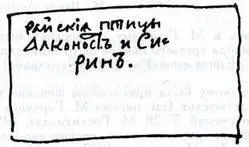 райскія птицы
Алконостъ и Си-
ринъ.